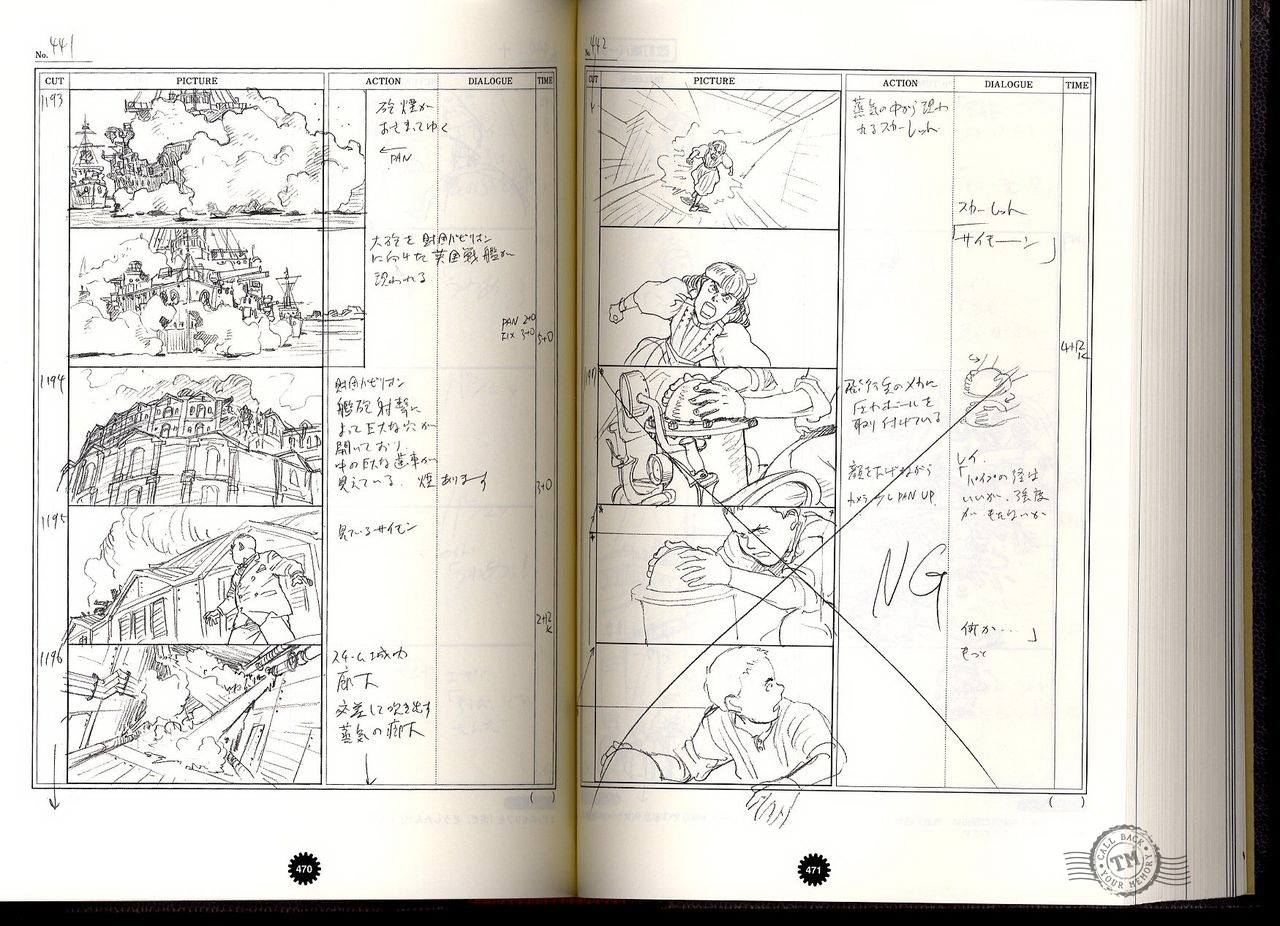 No. 441
CUT PICTURE ACTION DIALOGUE TIME
1193
砲煙が
おさまってゆく
PAN
大砲を財団パビリオン
に向けた英国戦艦が
現われる
PAN 2+0
FIX 3+0
5+0
1194
財団パビリオン
艦砲射撃に
よって巨大な穴が
開いており
中の巨大な歯車が
見えている. 煙あります
3+0
1195
見ているサイモン
2+12
K
1196
スチーム城内
廊下
交差して吹き出す
蒸気の廊下
( )
470
No. 442
CUT PICTURE ACTION DIALOGUE TIME
蒸気の中から現わ
れるスカーレット
スカーレット
「サイモーン」
4+12
K
1197
飛行室のメカに
圧力ボールを
取り付けている
顔を下げながら
カメラ少しPAN UP
レイ.
「パイプの径は
いいが、強度
が もたないか
NG
何か…」
もっと
( )
471
CALL BACK
TM
YOUR MEMORY